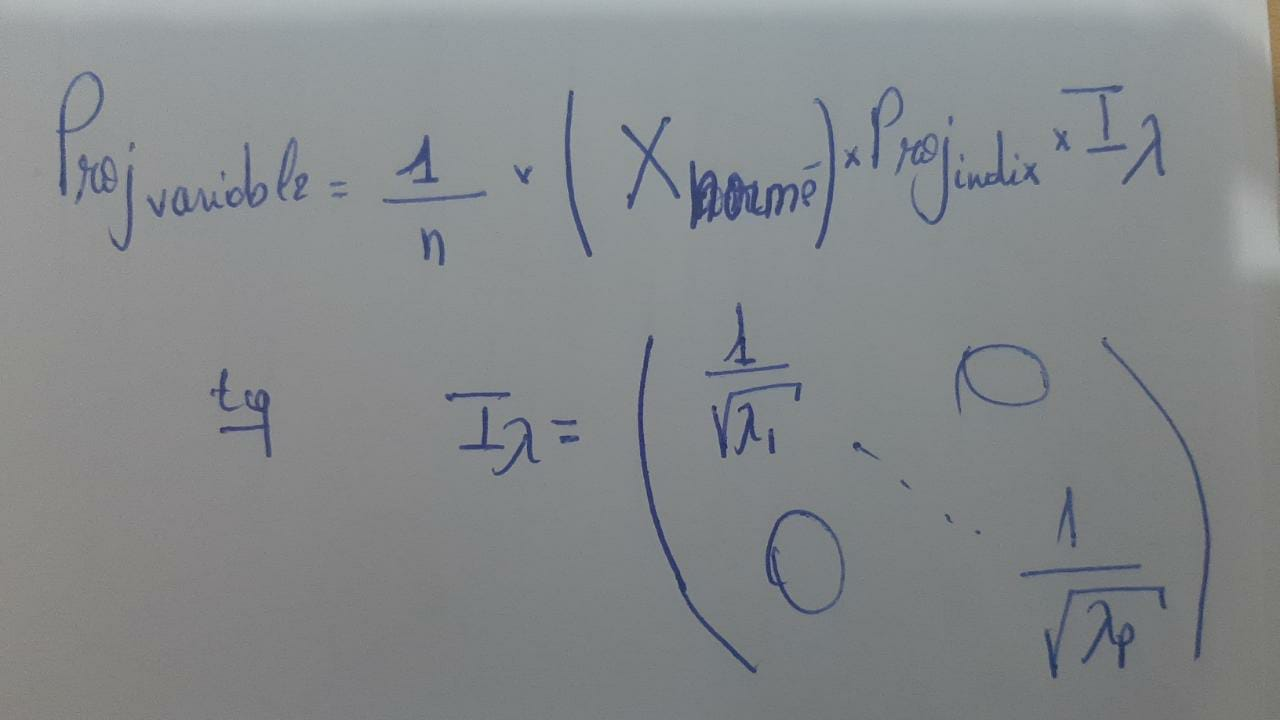 Proj variable = 1/n × (X normé) × Proj indix × I λ
tq I λ = ( 1/√λ1 0 ⋱ 0 1/√λp )